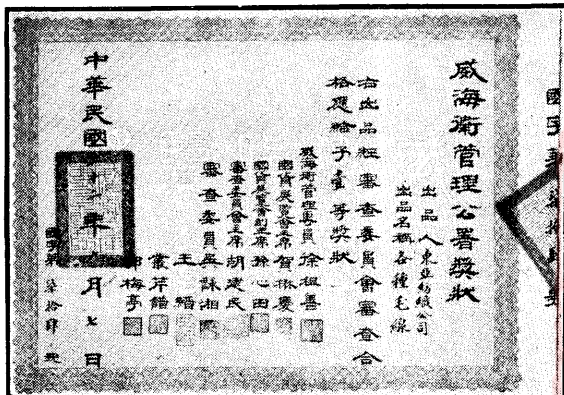 威海衛管理公署獎狀
出品人東亞毛紡公司
出品名稱各種毛線
右出品經審查委員會審查合
格應給予壹等獎狀
威海衛管理專員徐祖善
國貨展覽會主席賀
國貨展覽會副主席孫心田
審查委員會主席胡建民
審查委員吳詠湘
王
叢芹
梅亭
中華民國 年 月七日
國字第柒拾肆號